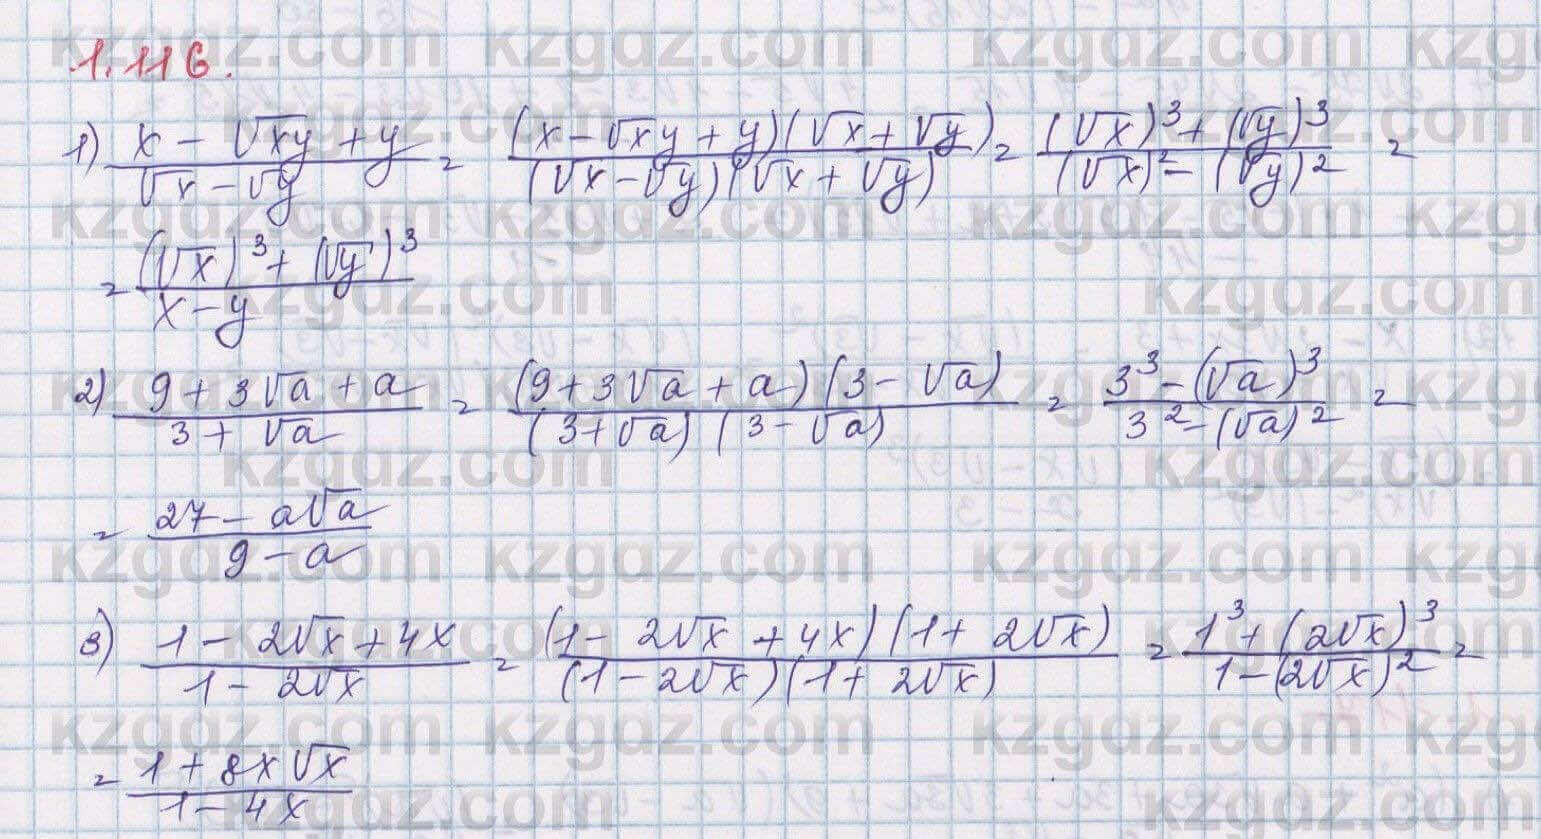 1.116.
1) (x - √xy + y)/(√x - √y) = ((x - √xy + y)(√x + √y))/((√x - √y)(√x + √y)) = ((√x)³ + (√y)³)/((√x)² - (√y)²) =
= ((√x)³ + (√y)³)/(x - y)
2) (9 + 3√a + a)/(3 + √a) = ((9 + 3√a + a)(3 - √a))/((3 + √a)(3 - √a)) = (3³ - (√a)³)/(3² - (√a)²) =
= (27 - a√a)/(9 - a)
3) (1 - 2√x + 4x)/(1 - 2√x) = ((1 - 2√x + 4x)(1 + 2√x))/((1 - 2√x)(1 + 2√x)) = (1³ + (2√x)³)/(1 - (2√x)²) =
= (1 + 8x√x)/(1 - 4x)
kzgdz.com